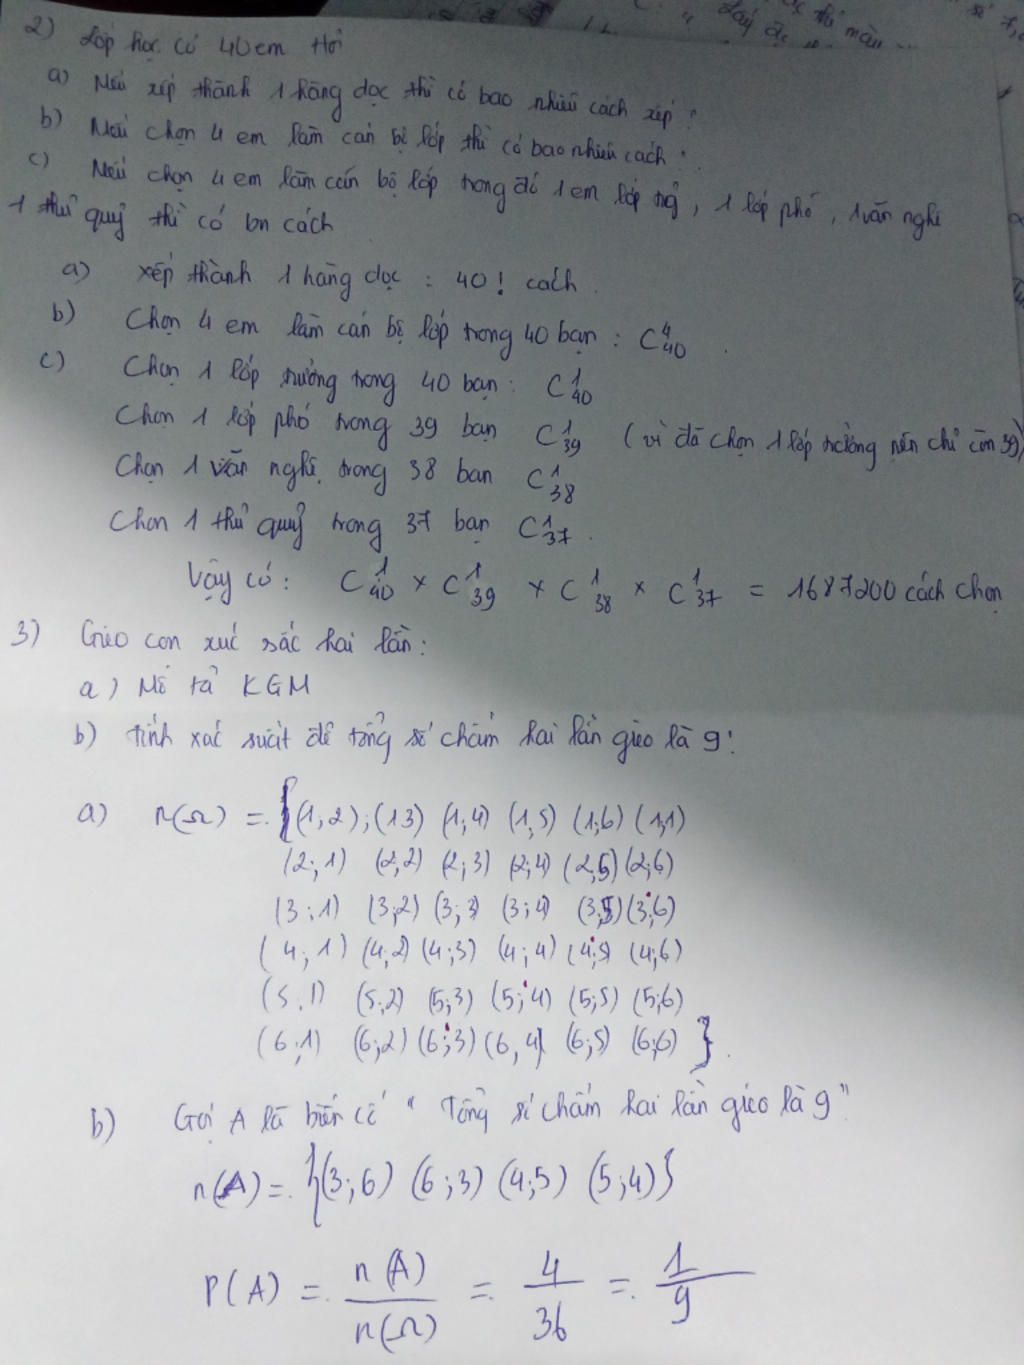 2) Lớp học có 40 em Hỏi
a) Nếu xếp thành 1 hàng dọc thì có bao nhiêu cách xếp?
b) Nếu chọn 4 em làm cán bộ lớp thì có bao nhiêu cách.
c) Nếu chọn 4 em làm cán bộ lớp trong đó 1 em lớp trg, 1 lớp phó, 1 văn nghệ
1 thủ quỹ thì có bn cách
a) xếp thành 1 hàng dọc : 40! cách.
b) Chọn 4 em làm cán bộ lớp trong 40 bạn : C⁴₄₀.
c) Chọn 1 lớp trưởng trong 40 bạn: C¹₄₀
Chọn 1 lớp phó trong 39 bạn C¹₃₉ (vì đã chọn 1 lớp trưởng nên chỉ còn 39)
Chọn 1 văn nghệ trong 38 bạn C¹₃₈
Chọn 1 thủ quỹ trong 37 bạn C¹₃₇.
Vậy có: C¹₄₀ × C¹₃₉ × C¹₃₈ × C¹₃₇ = 1687200 cách chọn
3) Gieo con xúc sắc hai lần:
a) Mô tả KGM
b) Tính xác suất để tổng số chấm hai lần gieo là 9!
a) n(Ω) = {(1,2);(13) (1;4) (1,5) (1;6) (1,1)
(2;1) (2,2) (2;3) (2;4) (2,5) (2;6)
(3;1) (3;2) (3;3) (3;4) (3,5) (3;6)
(4;1) (4;2) (4;3) (4;4) (4;5) (4;6)
(5.1) (5.2) (5;3) (5;4) (5;5) (5;6)
(6;1) (6;2) (6;3) (6,4) (6;5) (6;6) }.
b) Gọi A là biến cố " Tổng số chấm hai lần gieo là 9"
n(A) = {(3;6) (6;3) (4;5) (5;4)}
P(A) = n(A)/n(Ω) = 4/36 = 1/9